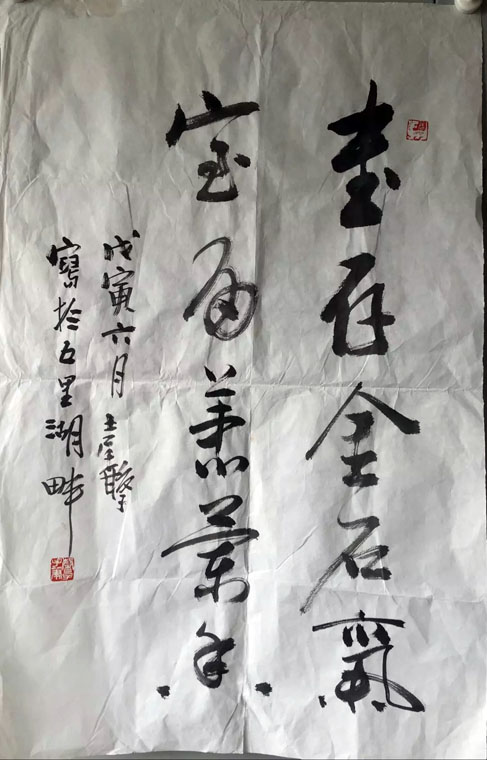 書存金石氣
室有蕙蘭香
戊寅六月
寫於五里湖畔